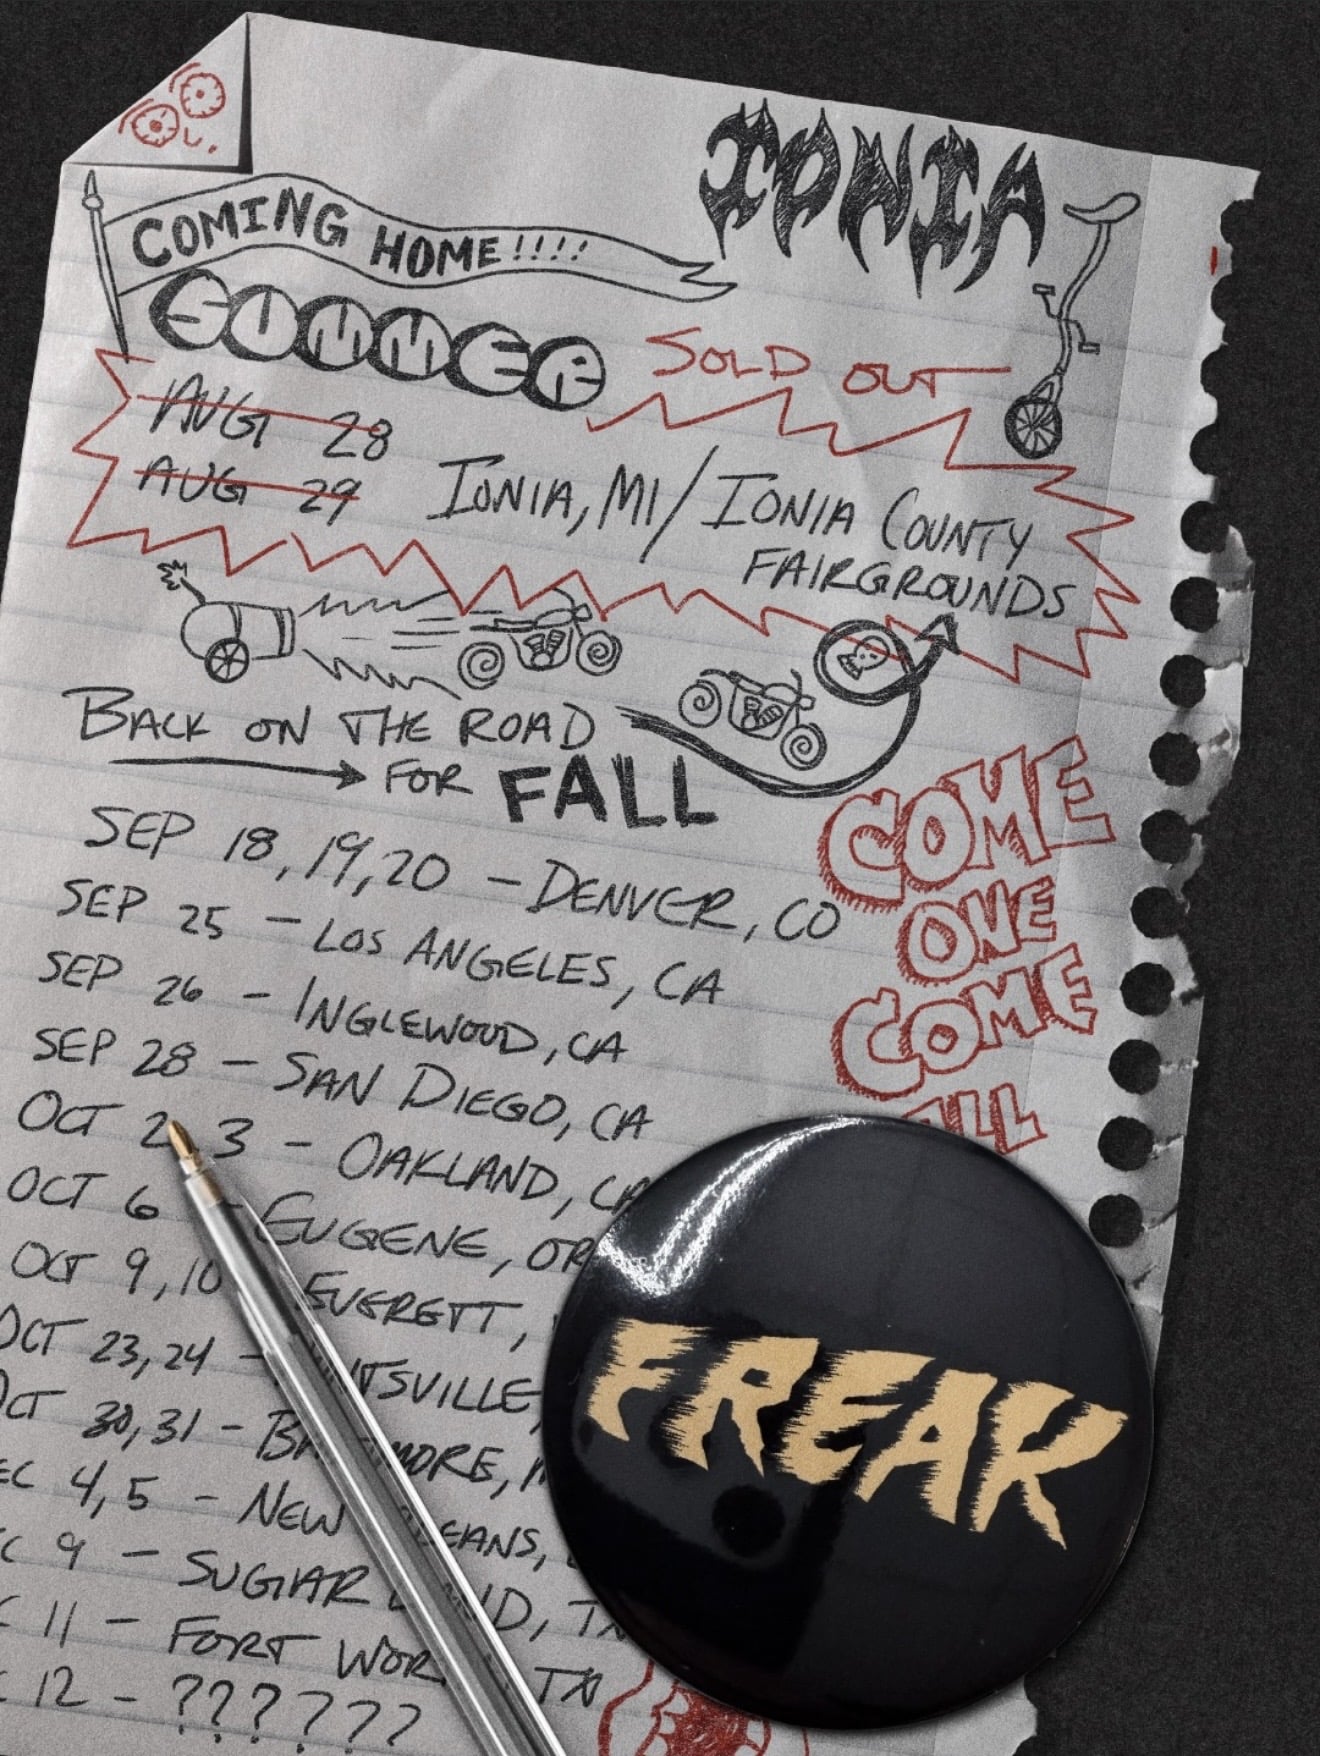 IONIA
COMING HOME!!!!
SUMMER
SOLD OUT
AUG 28
AUG 29 IONIA, MI/IONIA COUNTY
FAIRGROUNDS
BACK ON THE ROAD
FOR FALL
SEP 18, 19, 20 - DENVER, CO
SEP 25 - LOS ANGELES, CA
SEP 26 - INGLEWOOD, CA
SEP 28 - SAN DIEGO, CA
OCT 2 3 - OAKLAND, CA
OCT 6 - EUGENE, OR
OCT 9, 10 EVERETT,
OCT 23, 24 - NTSVILLE,
OCT 30, 31 - BA MORE, M
EC 4, 5 - NEW EANS,
C 9 - SUGAR L ND, TX
C 11 - FORT WOR TX
C 12 - ??????
COME
ONE
COME
ALL
FREAK